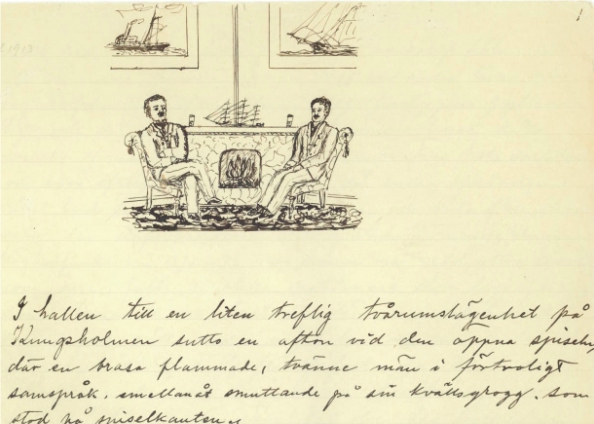 1
I hallen till en liten treflig tvårumslägenhet på
Kungsholmen sutto en afton vid den öppna spiseln,
där en brasa flammade, tvänne män i förtroligt
samspråk, emellanåt smuttande på sin kvällsgrogg, som
stod på spiselkanten